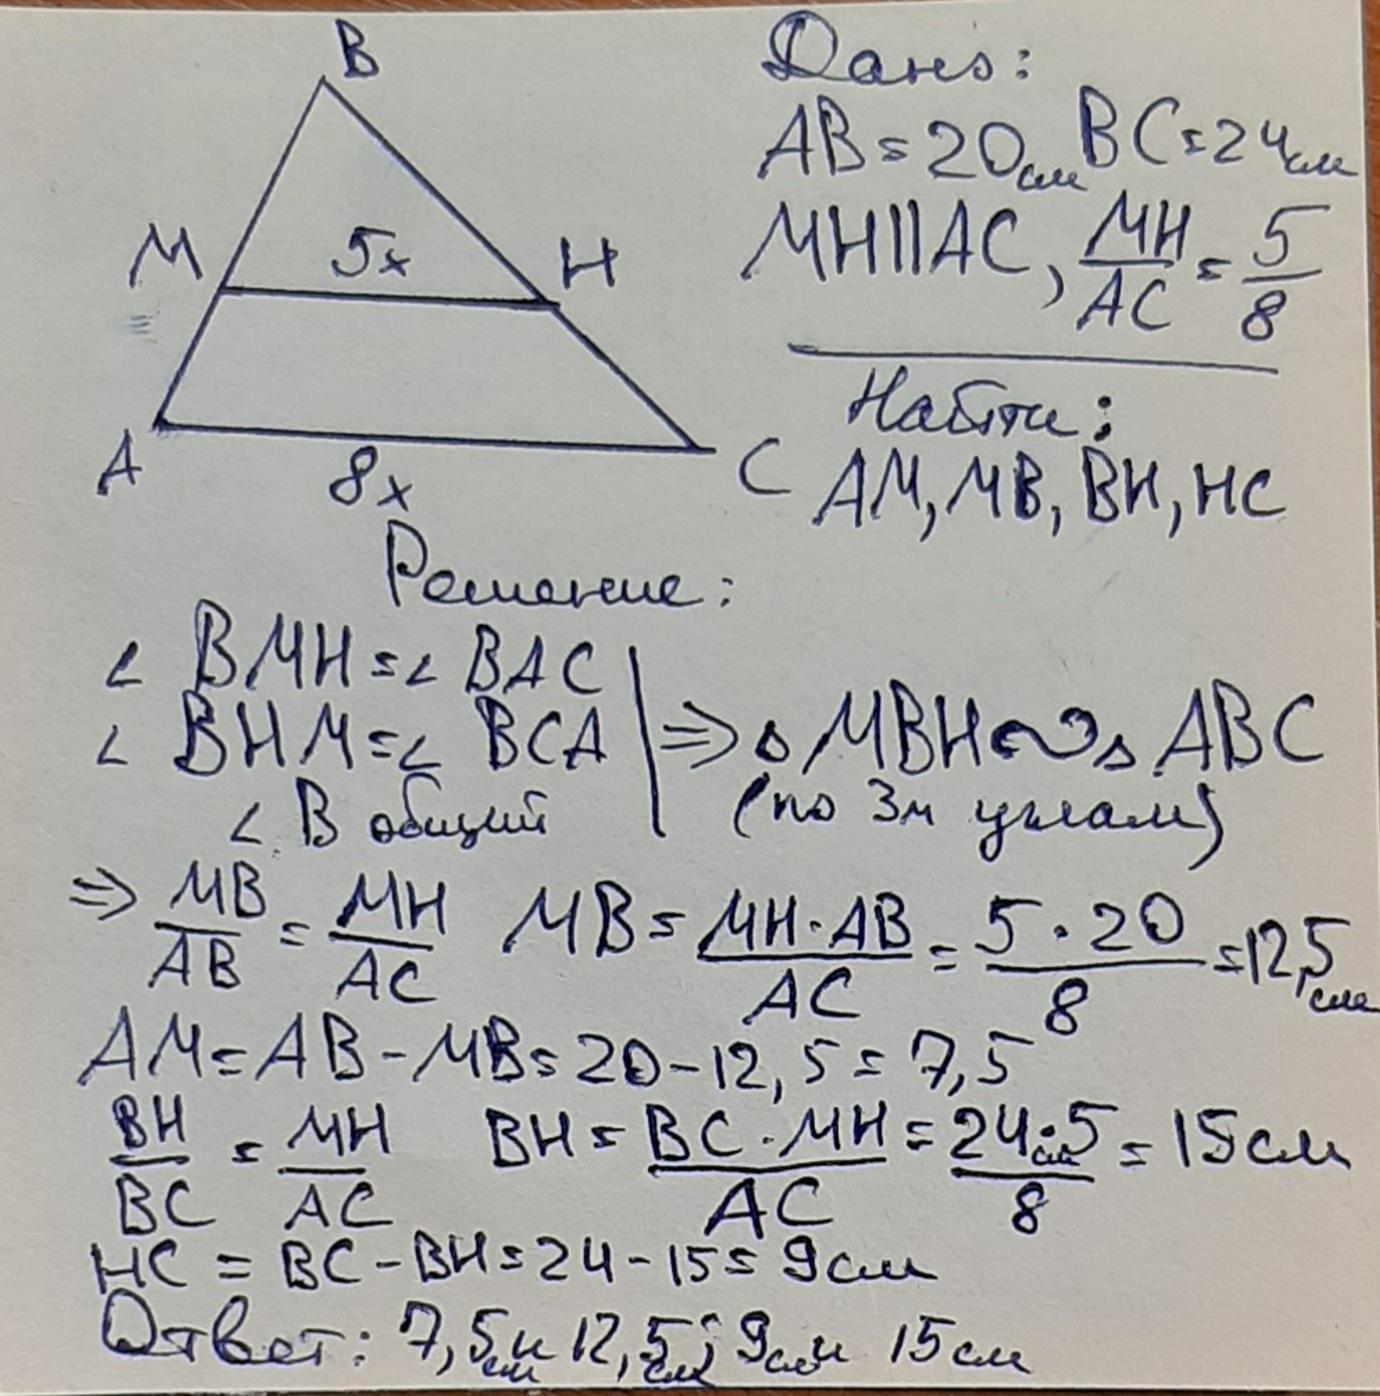 B
M 5x H
A 8x C
Дано:
AB = 20см BC = 24см
MH||AC, MH/AC = 5/8
Найти:
AM, MB, BH, HC
Решение:
∠ BMH = ∠ BAC
∠ BHM = ∠ BCA
∠ B общий
⇒ △ MBH ∾ △ ABC
(по 3м углам)
⇒ MB/AB = MH/AC MB = MH·AB/AC = 5·20/8 = 12,5см
AM = AB - MB = 20 - 12,5 = 7,5
BH/BC = MH/AC BH = BC·MH/AC = 24см·5/8 = 15см
HC = BC - BH = 24 - 15 = 9см
Ответ: 7,5см и 12,5см; 9см и 15см